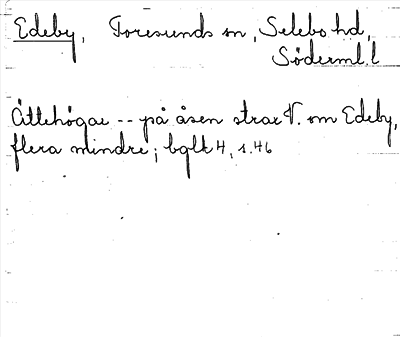 Edeby, Toresunds sn, Selebo hd,
Söderml. l
Ättehögar -- på åsen strax V. om Edeby,
flera mindre; bglt 4, s. 46